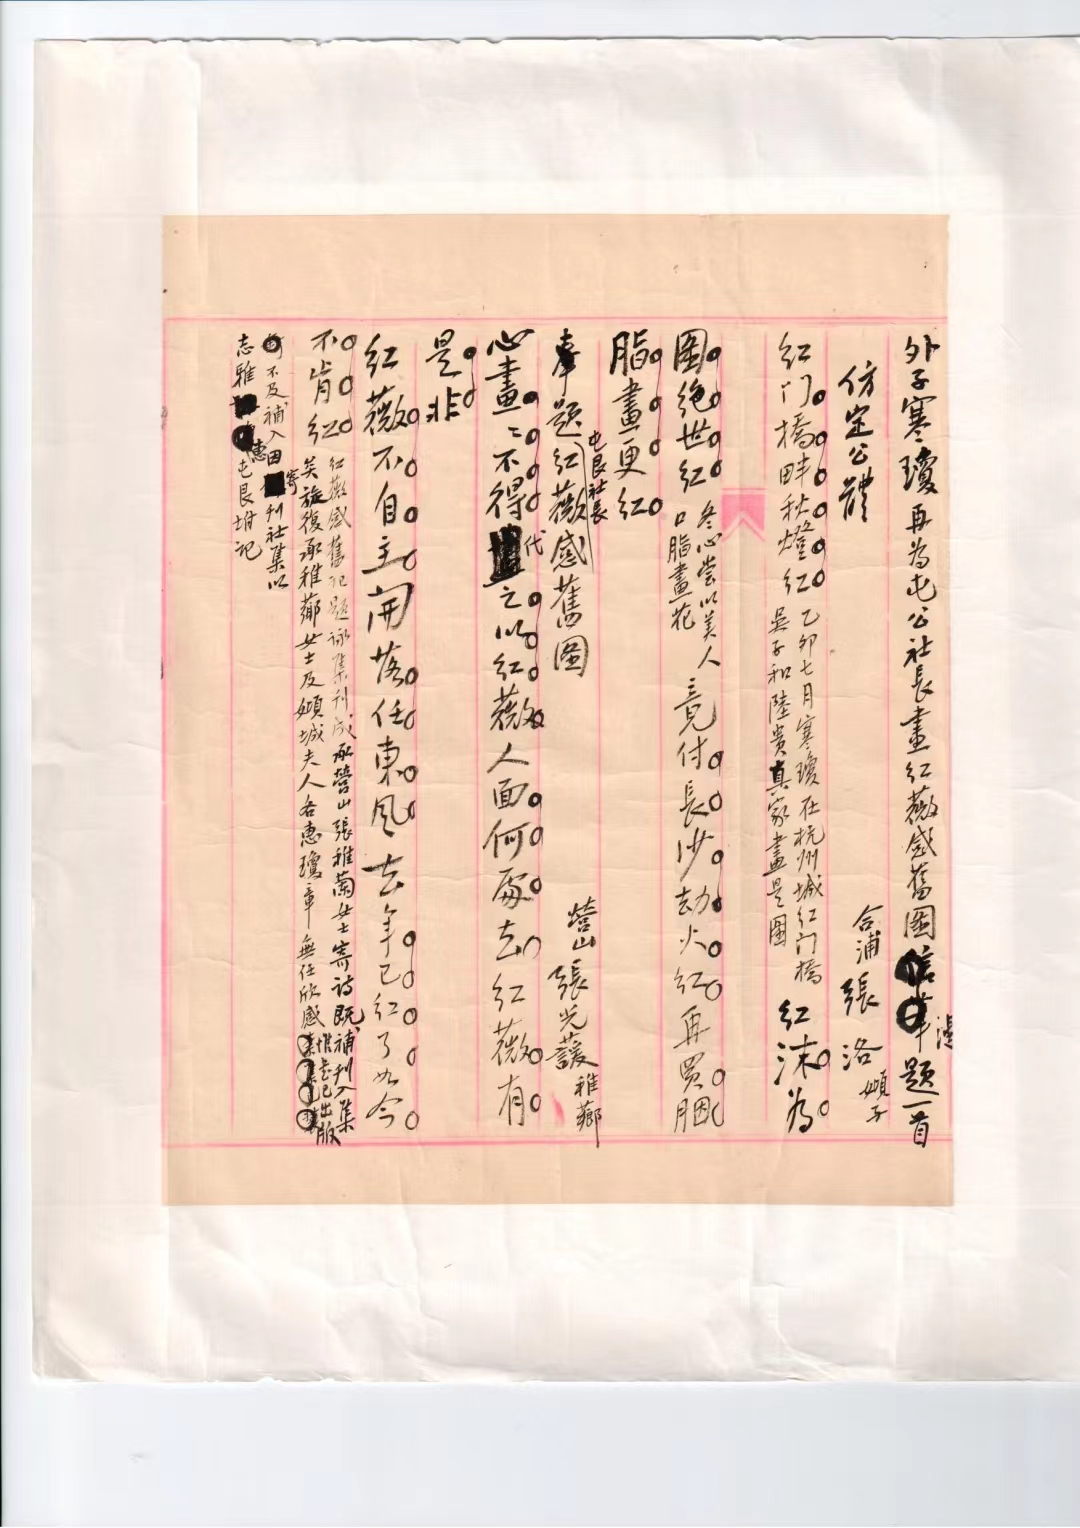 外子寒瓊再為屯公社長畫紅薇感舊圖漫題一首
仿定公體
合浦張洛傾子
紅门橋畔秋燈紅
乙卯七月寒瓊在杭州城紅门橋
吳子和陸貴真家畫是圖
紅沫為
圖絕世紅
冬心嘗以美人
口脂畫花
竟付長沙劫火紅再買胭
脂畫更紅
奉題屯艮社長紅薇感舊圖
營山張光蕙稚薌
心畫心畫不得代之以紅薇人面何處去紅薇有
是非
紅薇不自主開落任東風去年已紅了如今
不肯紅
紅薇感舊記題詠集刊成承營山張稚蘭女士寄詩既補刊入集
矣旋復承稚薌女士及傾城夫人各惠瓊章無任欣感惟卷已出版
不及補入因寄刊社集以
志雅惠屯艮坿記